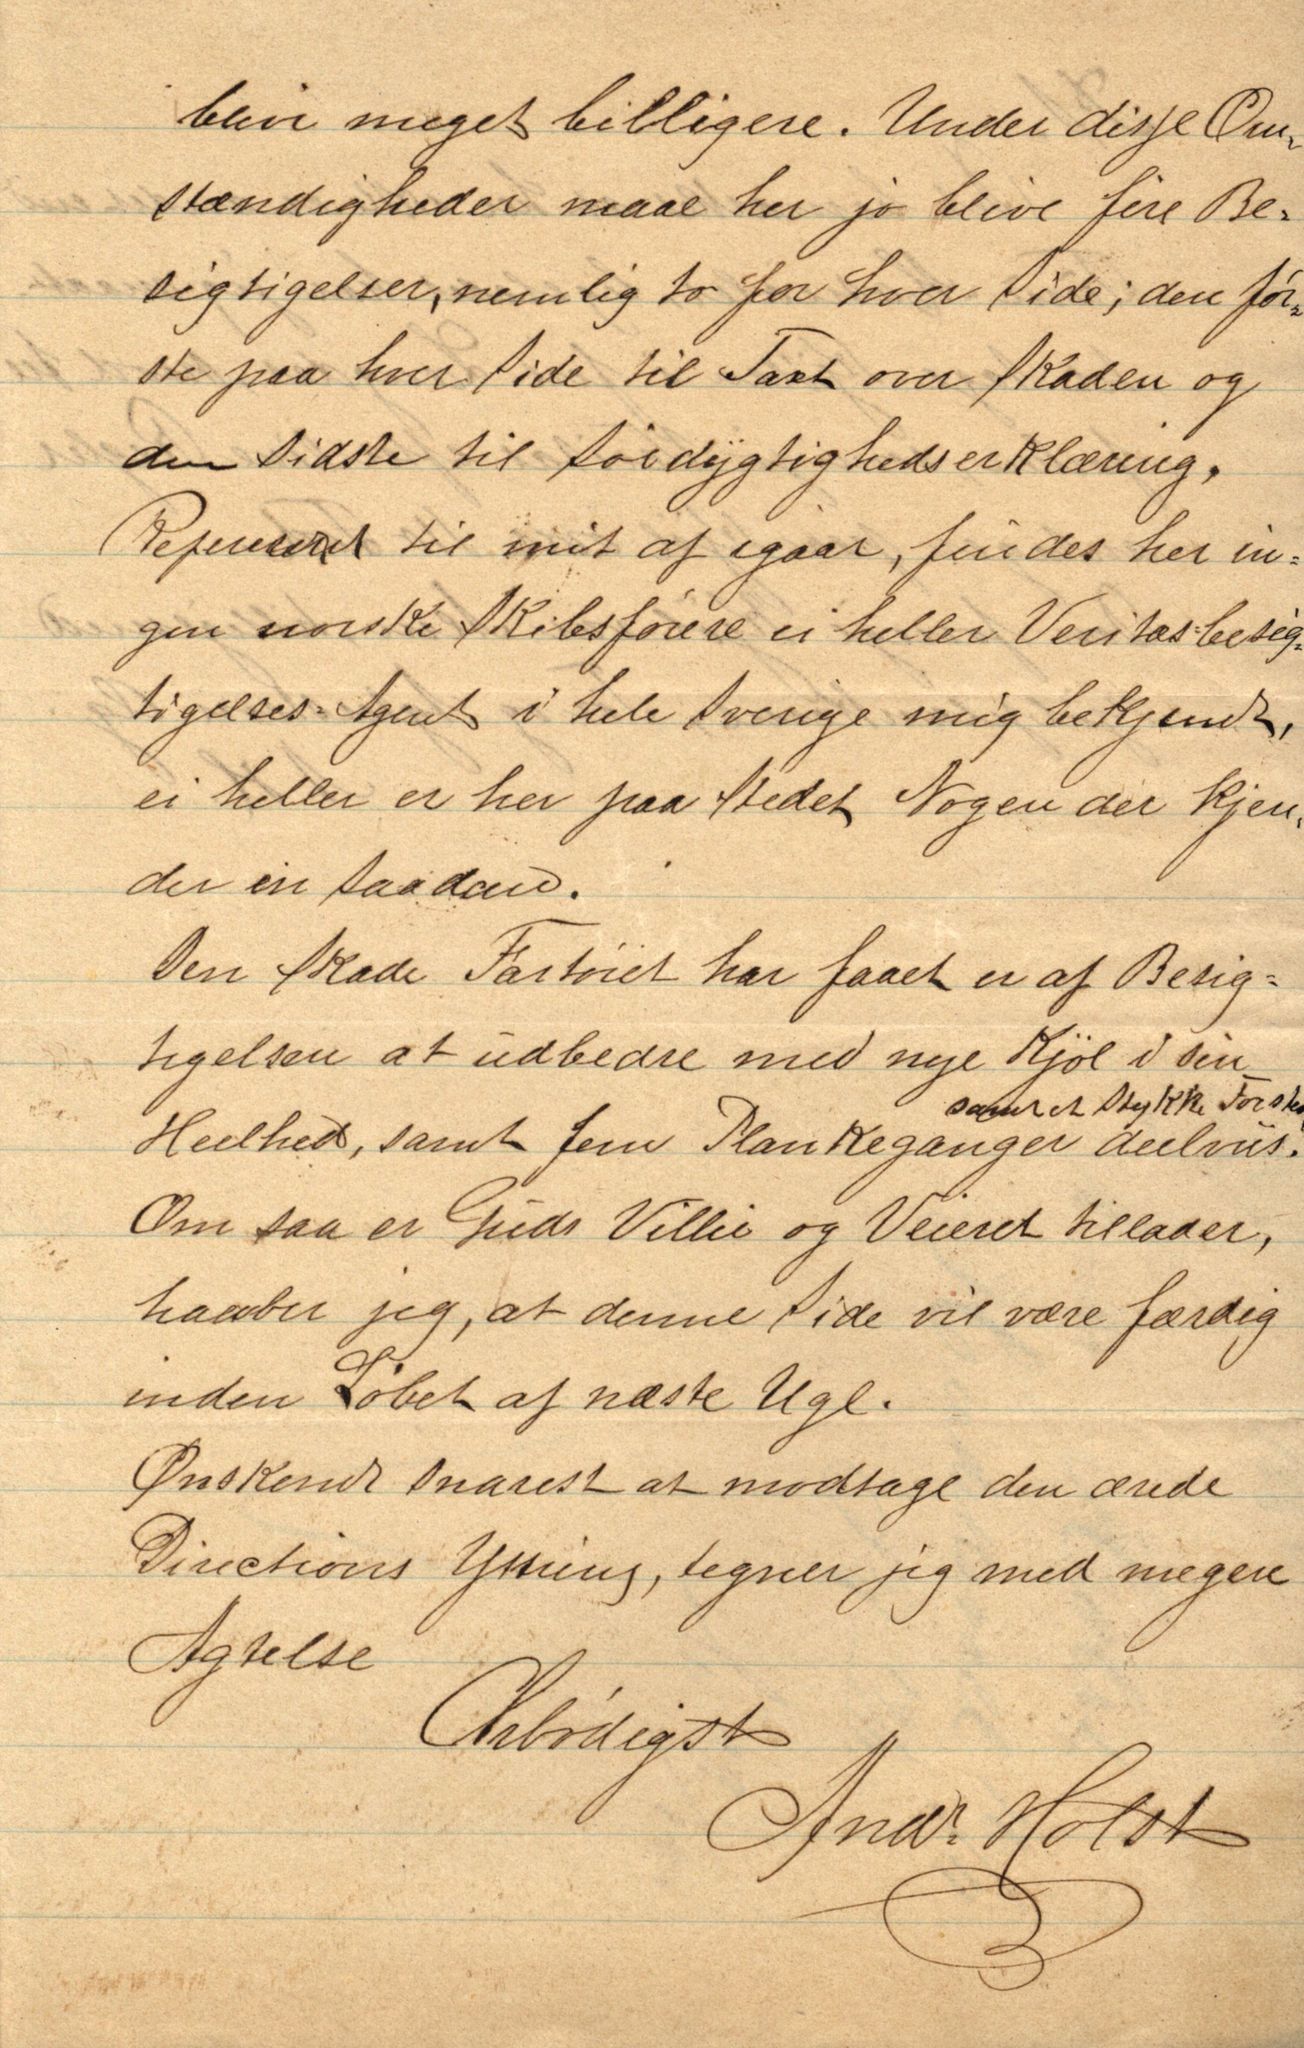 blive meget billigere. Under disse Om-
stændigheder maae her jo blive fire Be-
sigtigelser, nemlig to for hver Side; den før-
ste paa hver Side til Taxt over Skaden og
den sidste til Södygtighedserklæring.
Refererend til mit af igaar, findes her in-
gen norske Skibsførere ei heller Veritas-besig-
tigelses-Agent i hele Sverige mig bekjendt,
ei heller er her paa Stedet Nogen der kjen-
der en saadan.
Den Skade Fartöiet har faaet er af Besig-
tigelsen at udbedre med nye Kjöl i sin
samt et Stykke Forstevn
Heelhed, samt fem Plankeganger deelviis.
Om saa er Guds Villie og Veiret tillader,
haaber jeg, at denne Side vil være færdig
inden Løbet af næste Uge.
Ønskende snarest at modtage den ærede
Directions Yttring, tegner jeg med megen
Agtelse
Ærbödigst
Andr. Holst